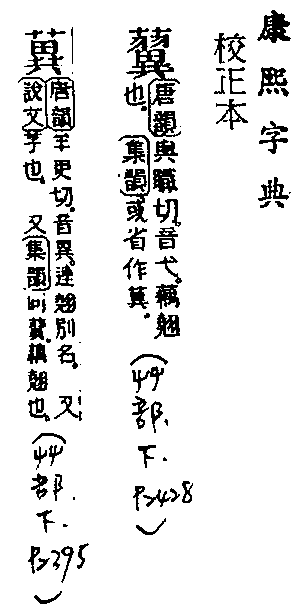 康熙字典
校正本
蘙
唐韻與職切。音弋。藕翹
也。集韻或省作萁。
(艸部.下.P.428)
萁
唐韻羊更切。音異。連翹別名。又
說文芓也。又集韻
藕翹也。(艸部.下.P.395)